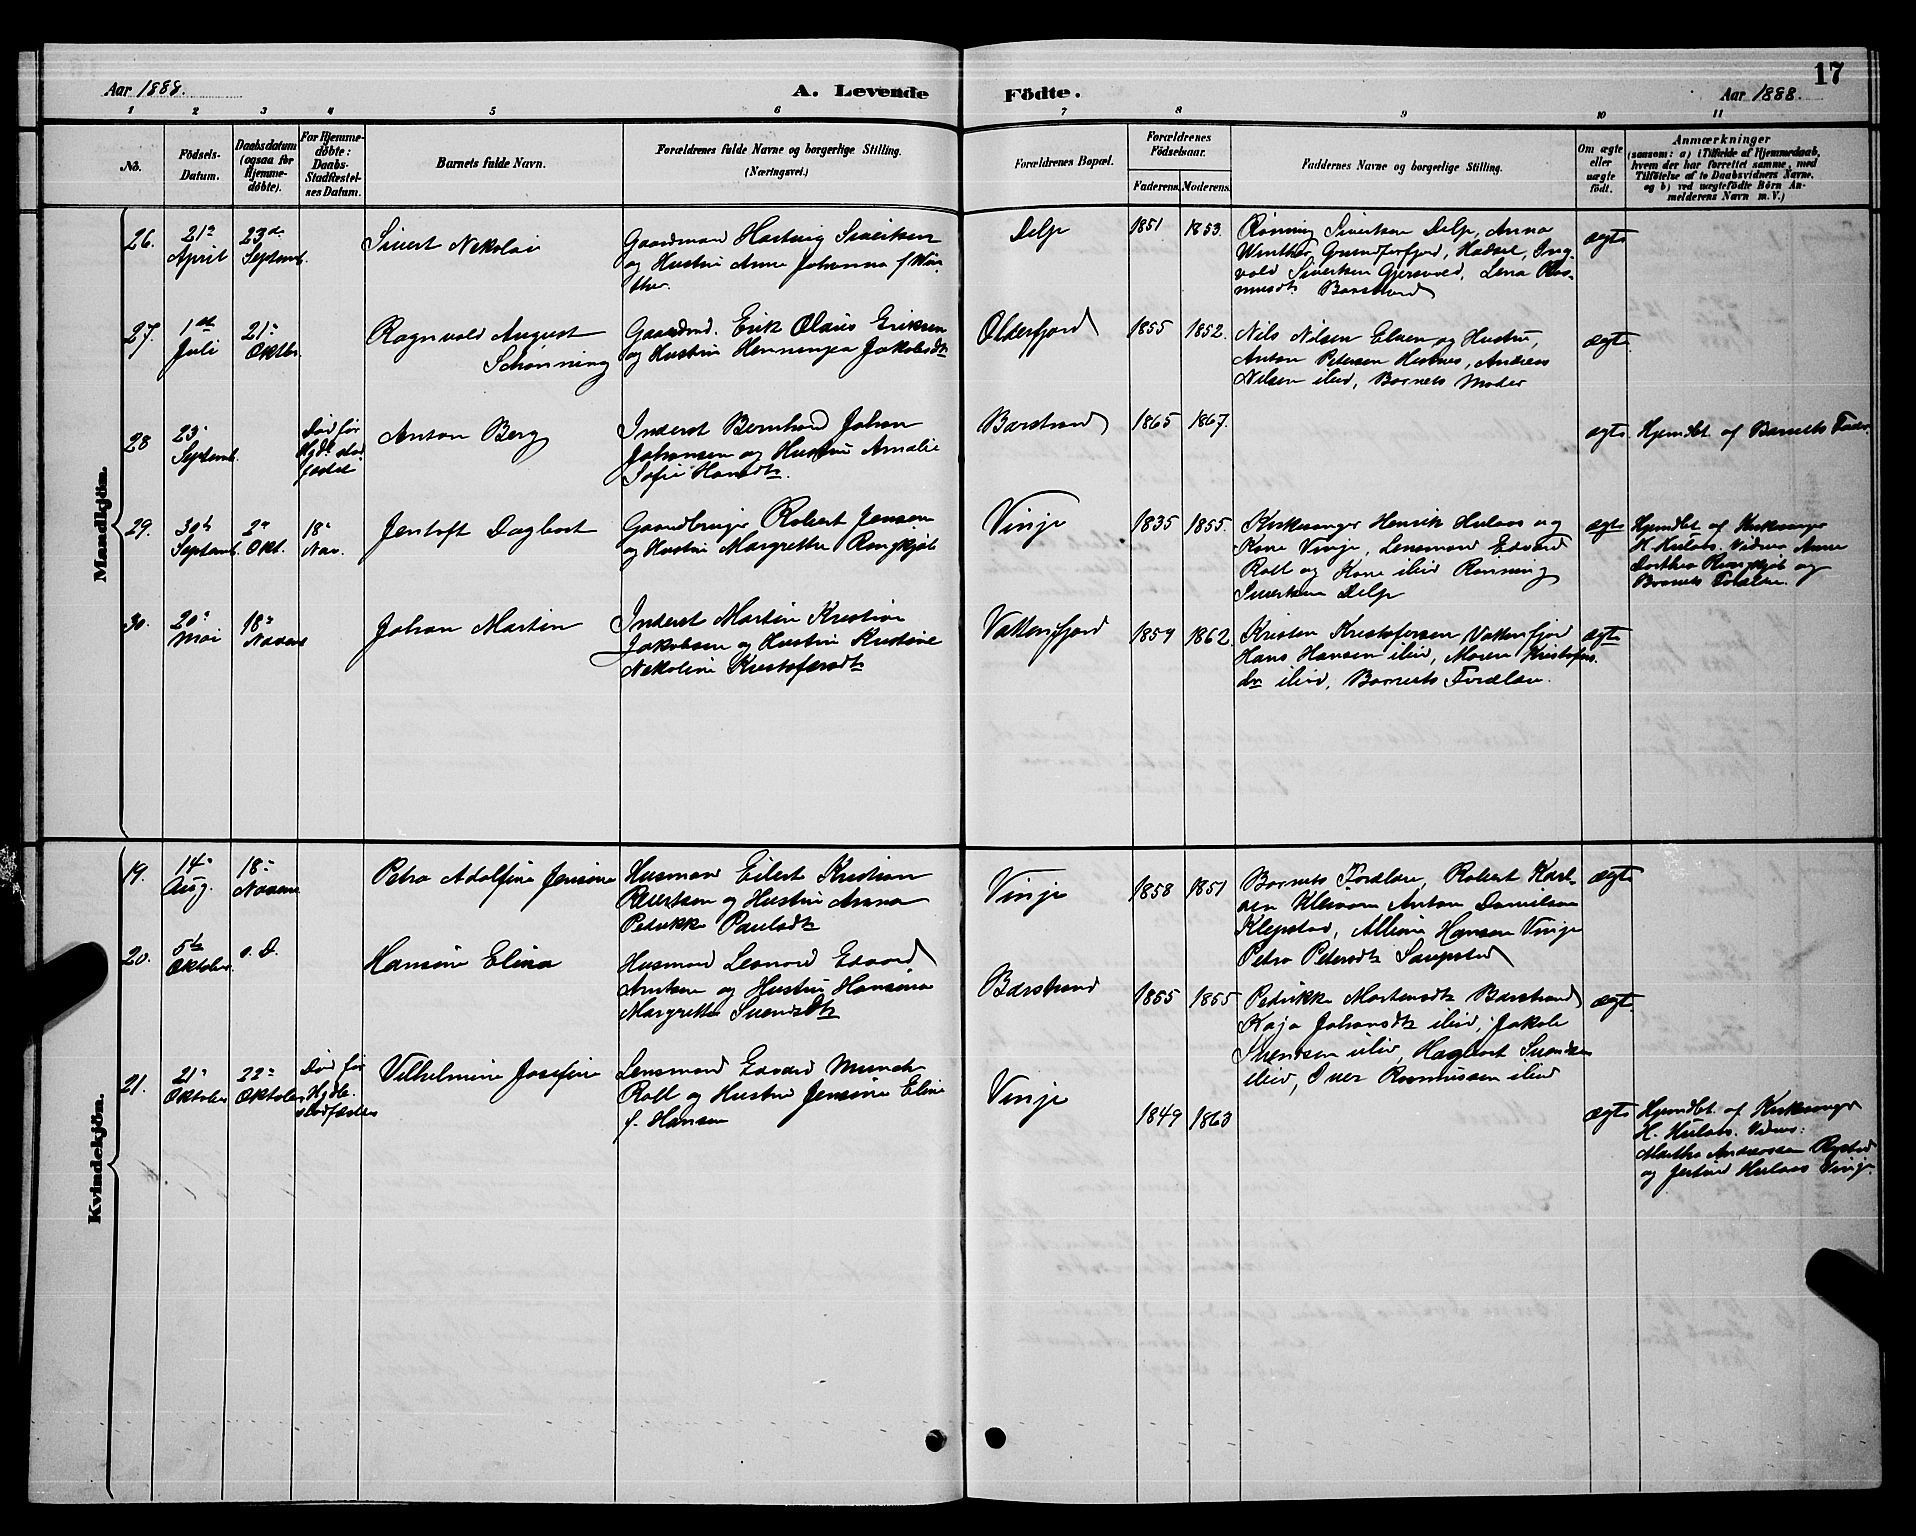 17
Aar 1888.
A. Levende Födte.
Aar 1888.
1 2 3 4 5 6 7 8 9 10 11
No.
Födsels-Datum.
Daabsdatum (ogsaa for Hjemme-döbte).
For Hjemme-döbte: Daabs-Stadfæstel-ses Datum.
Barnets fulde Navn.
Forældrenes fulde Navne og borgerlige Stilling.
(Næringsvei.)
Forældrenes Bopæl.
Forældrenes Födselsaar.
Faderens. Moderens.
Faddernes Navne og borgerlige Stilling.
Om ægte eller uægte födt.
Anmærkninger
(saasom: a) i Tilfælde af Hjemmedaab, hvem der har forrettet samme, med Tilföielse af to Daabsvidners Navne, og b) ved uægtefödte Börn An-melderens Navn m. V.)
Mandkjön.
26. 21de April 23de Septemb. Sivert Nikolai
Gaardmand Hartvig Sivertsen
og Hustru Anna Johanna f. Win-
ther.
Delp 1851 1853.
Rönning Sivertsen Delp, Anna
Winther, Grundforfjord, Hadsel, Ing-
vald Sivertsen Gjersvold, Lena Ras-
musdt. Barstrand
ægte
27. 1ste Juli 21 Oktbr Ragnvald August
Schönning
Gaardmd. Erik Olaus Eriksen
og Hustru Henningea Jakobsdt
Olderfjord 1855 1852.
Nils Nilsen Elven og Hustru,
Anton Petersen Hestnes, Andreas
Nilsen ibid, Barnets Moder
ægte.
28 23 Septemb. Död för Hjd. stad-fæstet Anton Berg
Inderst Bernhard Johan
Johansen og Hustru Amalie
Sofie Hansdt.
Barstrand 1865 1867.
ægte Hjemdbt. af Barnets Fader.
29. 30te Septemb. 2 Okt. 18 Nov. Jentoft Dagbort
Gaardbruger Robert Jensen
og Hustru Margrethe Ringkjöb
Vinje 1835 1855.
Kirkesanger Henrik Hulaas og
Kone Vinje, Lensmand Edvard
Roll og Kone ibid Rönning
Sivertsen Delp
ægte
Hjemdbt. af Kirkesanger
H. Hulaas. Vidner Anne
Dorthea Ringkjöb og
Barnets Forældre.
30. 20 Mai 18 Novem Johan Martin
Inderst Martin Kristian
Jakobsen og Hustru Kristine
Nikoline Kristofersdt
Vattenfjord 1859 1862
Kristen Kristofersen Vattenfjord
Hans Hansen ibid, Maren Kristofers.
dtr ibid, Barnets Forældre.
ægte
Kvindekjön.
19. 14 Aug. 18 Novem Petra Adolfine Jensine
Husmand Eilert Kristian
Eilertsen og Hustru Anna
Pedrikke Paulsdt
Vinje 1858 1851
Barnets Forældre, Robert Karl-
sen Anton Danielsen
Klepstad, Alline Hansen Vinje
Petra Petersdt Saupstad
ægte
20. 5te Oktober. s. D. Hansine Elina
Husmand Leonard Edvard
Arntsen og Hustru Hansine
Margrethe Svendsdt
Barstrand 1855 1855
Pedrikke Mortensdt Barstrand
Kaja Johansdt ibid, Jakob
Svendsen ibid, Hagbart Svendsen
ibid, Iver Rasmussen ibid
ægte.
21. 21 Oktober 22 Oktober Död för Hjdb. stadfæstes Vilhelmine Josefine
Lensmand Edvard Munch
Roll og Hustru Jensine Eline
f. Hansen
Vinje 1849 1863
ægte
Hjemdbt. af Kirkesanger
H. Hulaas. Vidner:
Martha Andersen Rystad
og Jertine Hulaas Vinje.